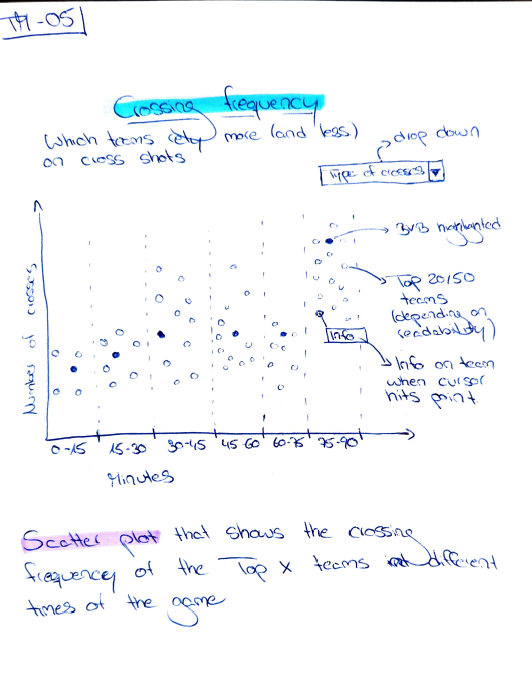 TH-05
Crossing frequency
Which teams rely more (and less)
on cross shots
drop down
Type of crosses
BVB highlighted
Top 20/50
teams
(depending on
readability)
Info
Info on team
when cursor
hits point.
Number of crosses
0-15 15-30 30-45 45-60 60-75 75-90
Minutes
Scatter plot that shows the crossing
frequency of the Top x teams at different
times of the game